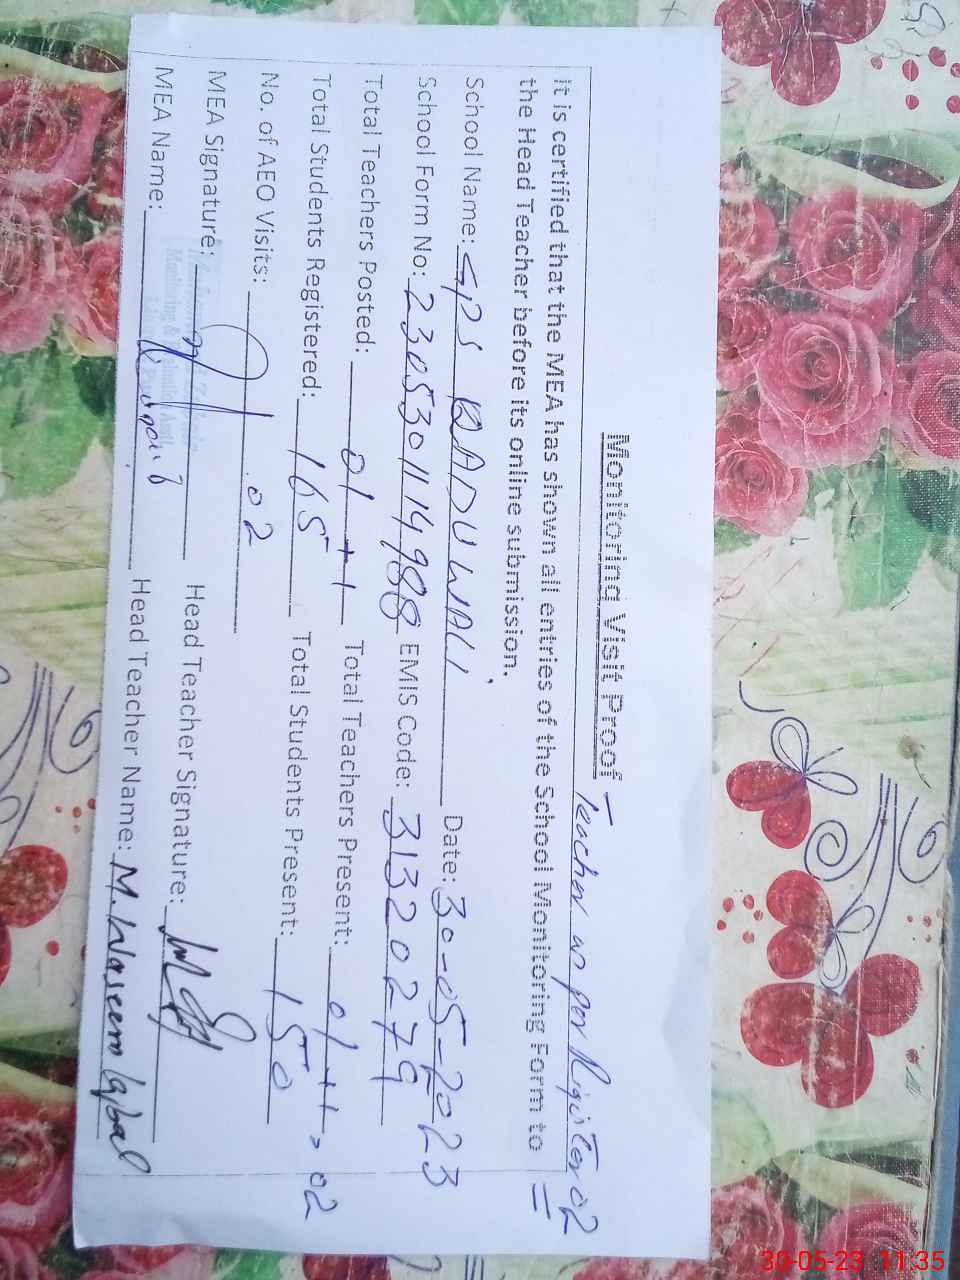 Monitoring Visit Proof
Teacher as per Register 02
It is certified that the MEA has shown all entries of the School Monitoring Form to
the Head Teacher before its online submission.
School Name: GPS BADUWALI Date: 30-05-2023
School Form No: 230530114988 EMIS Code: 31320279
Total Teachers Posted: 01 + 1 Total Teachers Present: 01 + 1 = 02
Total Students Registered: 165 Total Students Present: 150
No. of AEO Visits: 02
MEA Signature: Head Teacher Signature:
MEA Name: Head Teacher Name: M. Waseem Iqbal
30-05-23 11:35